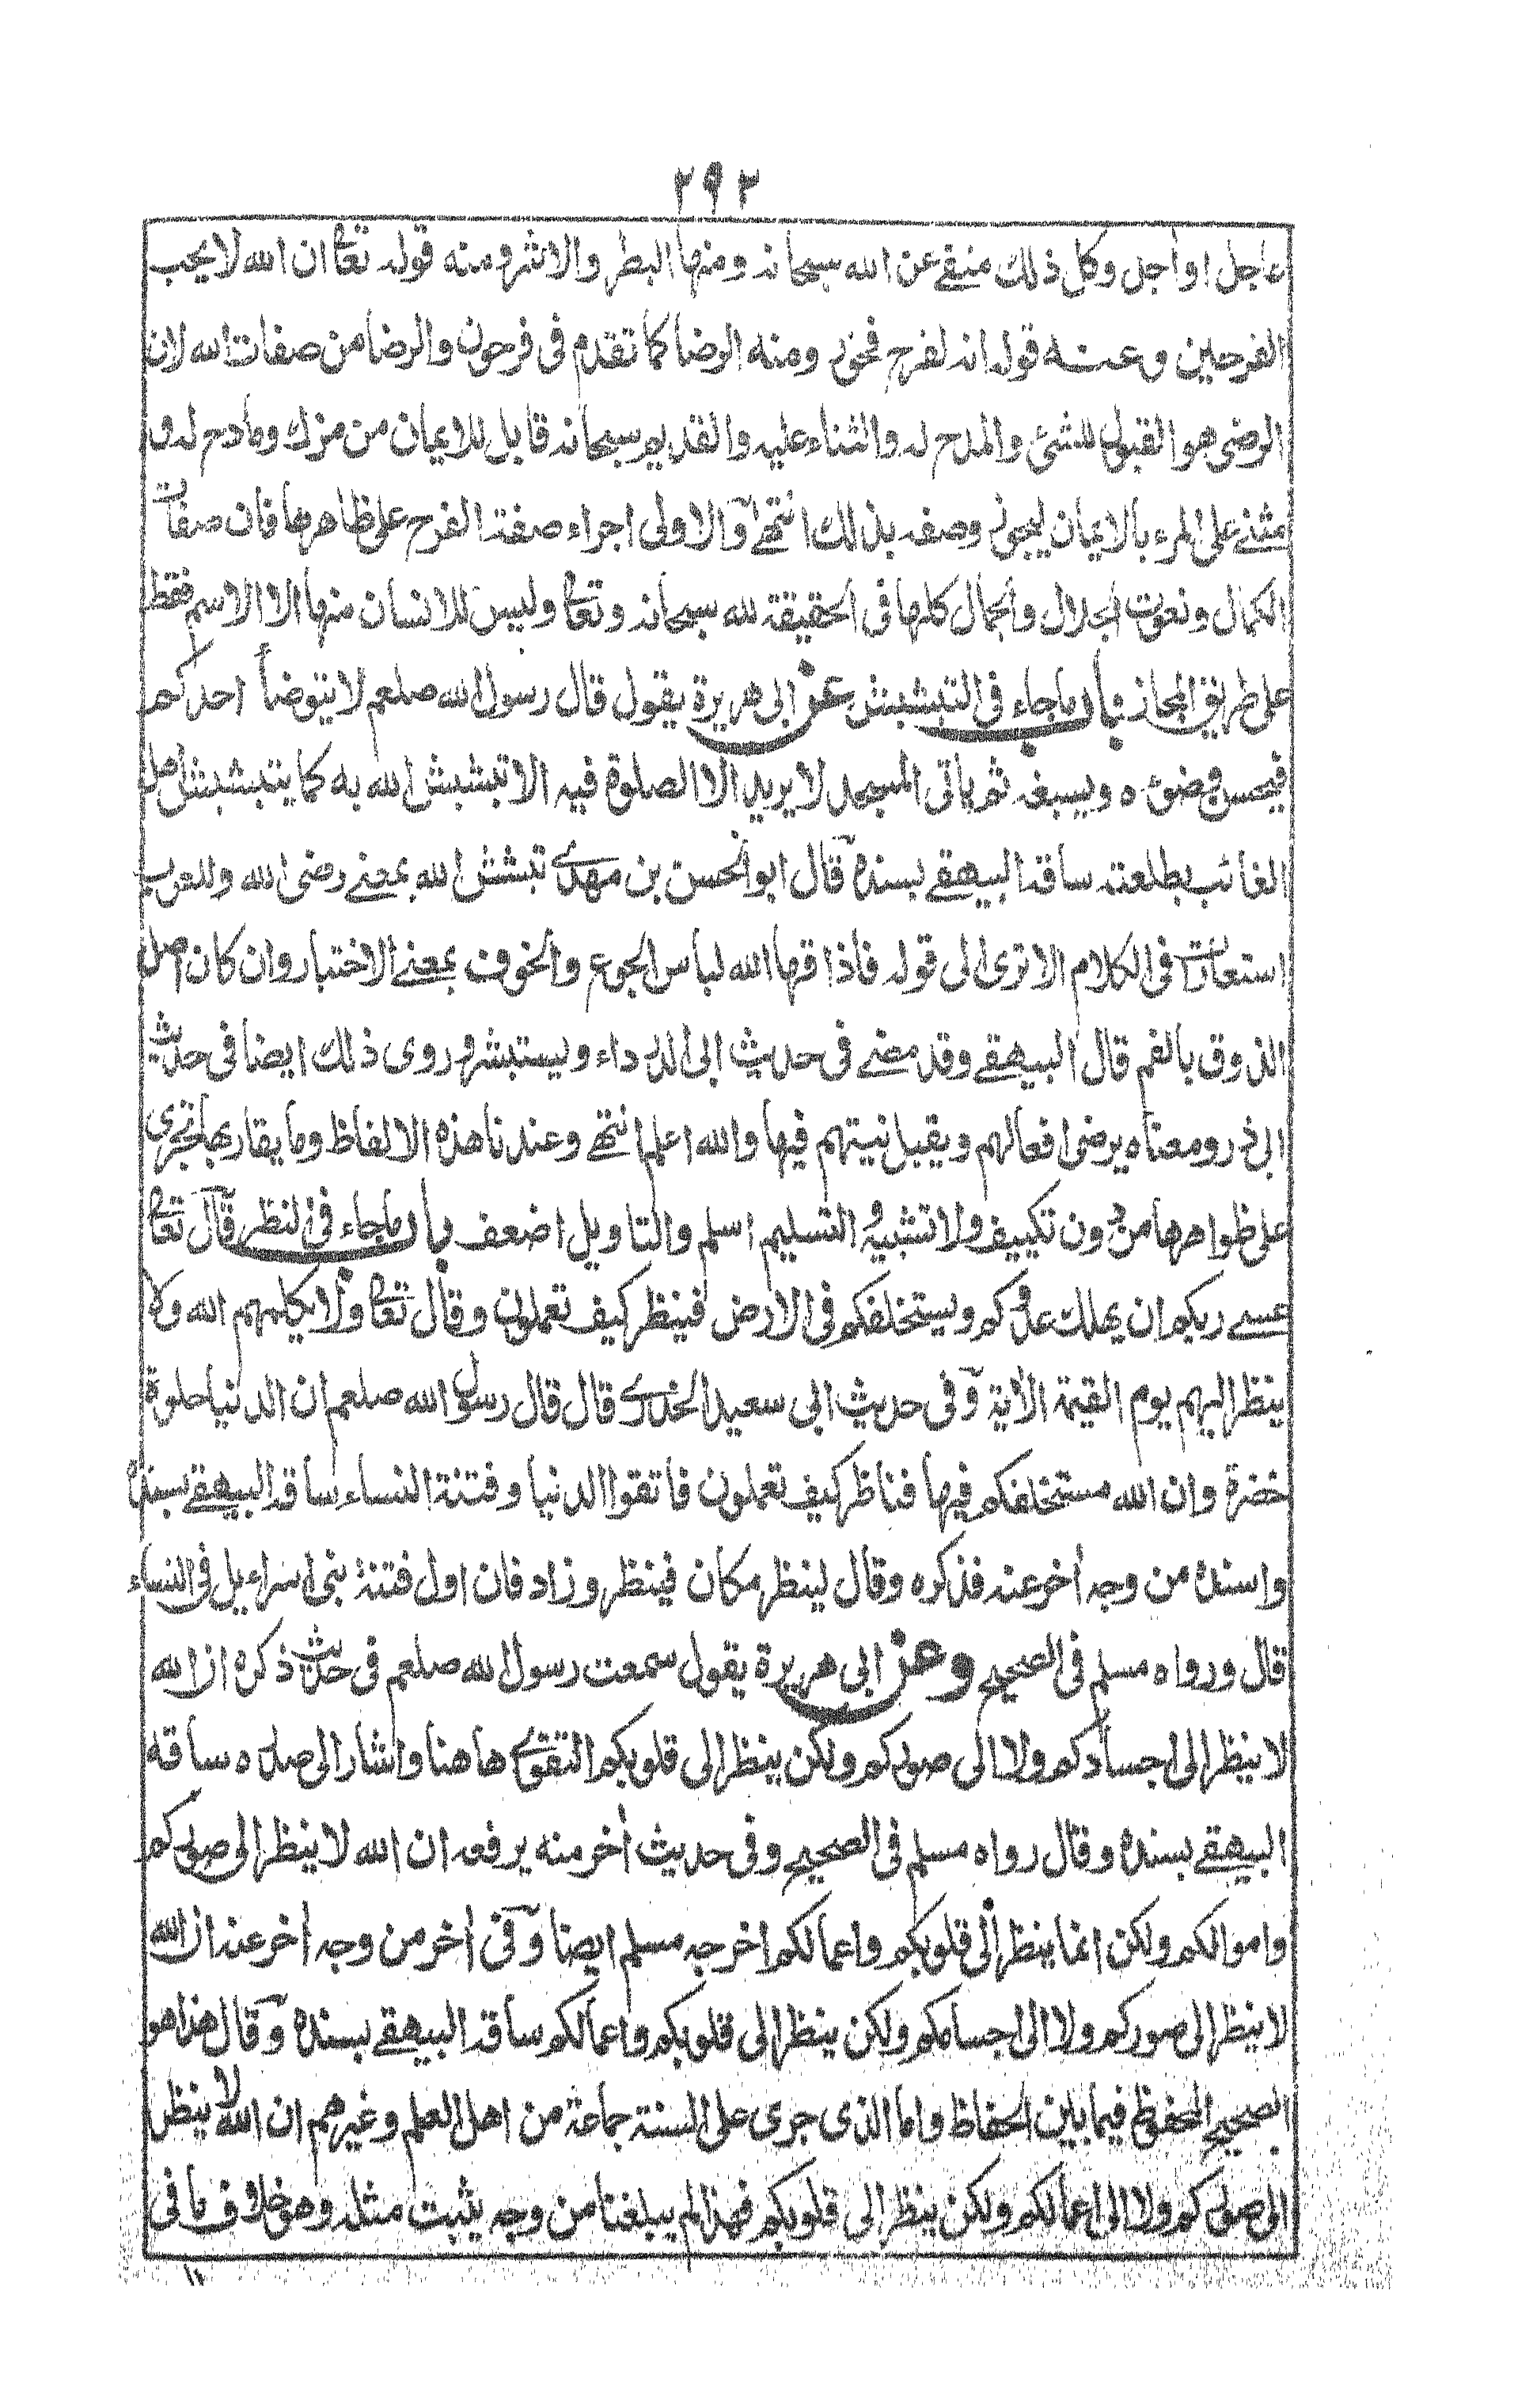 ٢٩٢
عاجل او اجل وكل ذلك منفے عن الله سبحانه ومنها البطر والاشر ومنه قوله تعالى ان الله لا يحب
الفرحين وعنه قوله انه لفرح فخور ومنه الرضا كما تقدم فى فرحون والرضا من صفات الله لان
الرضى هو القبول للشئ والمدح له والثناء عليه والقديم سبحانه قابل للايمان من مزك ومادح له و
مثنے على المرء بالايمان ليجوز وصفه بذلك انتهے والاولى اجراء صفة الفرح على ظاهرها فان صفات
الكمال ونعوت الجلال والجمال كلها فى الحقيقة لله سبحانه وتعالى وليس للانسان منها الا الاسم فقط
على طريق المجاز باب ما جاء فى التبشبش عن ابى هريرة يقول قال رسول الله صلعم لا يتوضأ احدكم
فيحسن وضوءه ويسبغه ثم ياتى المسجد لا يريد الا الصلوة فيه الا تبشبش الله به كما يتبشبش اهل
الغائب بطلعته ساقه البيهقے بسنده قال ابو الحسن بن مهدي تبشش الله بمعنے رضى الله وللعرب
استعارات فى الكلام الا ترى الى قوله فاذاقها الله لباس الجوع والخوف بمعنے الاختبار وان كان اصل
الذوق بالفم قال البيهقے وقد مضے فى حديث ابى الدرداء ويستبشر وروى ذلك ايضا فى حديث
ابى ذر ومعناه يرضى افعالهم ويقبل نيتهم فيها والله اعلم انتهے وعندنا هذه الالفاظ وما يقاربها تجرى
على ظواهرها من دون تكييف ولا تشبيه والتسليم اسلم والتاويل اضعف باب ما جاء فى النظر قال تعالى
عسے ربكم ان يهلك عدوكم ويستخلفكم فى الارض فينظر كيف تعملون وقال تعالى ولا يكلمهم الله ولا
ينظر اليهم يوم القيمة الأية وفى حديث ابى سعيد الخدرى قال قال رسول الله صلعم ان الدنيا حلوة
خضرة وان الله مستخلفكم فيها فناظر كيف تعملون فاتقوا الدنيا وفتنة النساء ساقه البيهقے بسنده
واسنده من وجه أخر عنه فذكره وقال لينظر مكان فينظر وزاد فان اول فتنة بنى اسراءيل فى النساء
قال ورواه مسلم فى الصحيح وعن ابى هريرة يقول سمعت رسول الله صلعم فى حديث ذكره ان الله
لا ينظر الى اجسادكم ولا الى صوركم ولكن ينظر الى قلوبكم التقوى هاهنا واشار الى صدره ساقه
البيهقے بسنده وقال رواه مسلم فى الصحيح وفى حديث أخر منه يرفعه ان الله لا ينظر الى صوركم
واموالكم ولكن انما ينظر الى قلوبكم واعمالكم اخرجه مسلم ايضا وفى أخر من وجه أخر عنه ان الله
لا ينظر الى صوركم ولا الى اجسامكم ولكن ينظر الى قلوبكم واعمالكم ساقه البيهقے بسنده وقال هذا هو
الصحيح المحفوظ فيما بين الحفاظ واما الذى جرى على السنة جماعة من اهل العلم وغيرهم ان الله لا ينظر
الى صوركم ولا الى اعمالكم ولكن ينظر الى قلوبكم فهذا لم يبلغنا من وجه يثبت مثله وهو خلاف ما فى